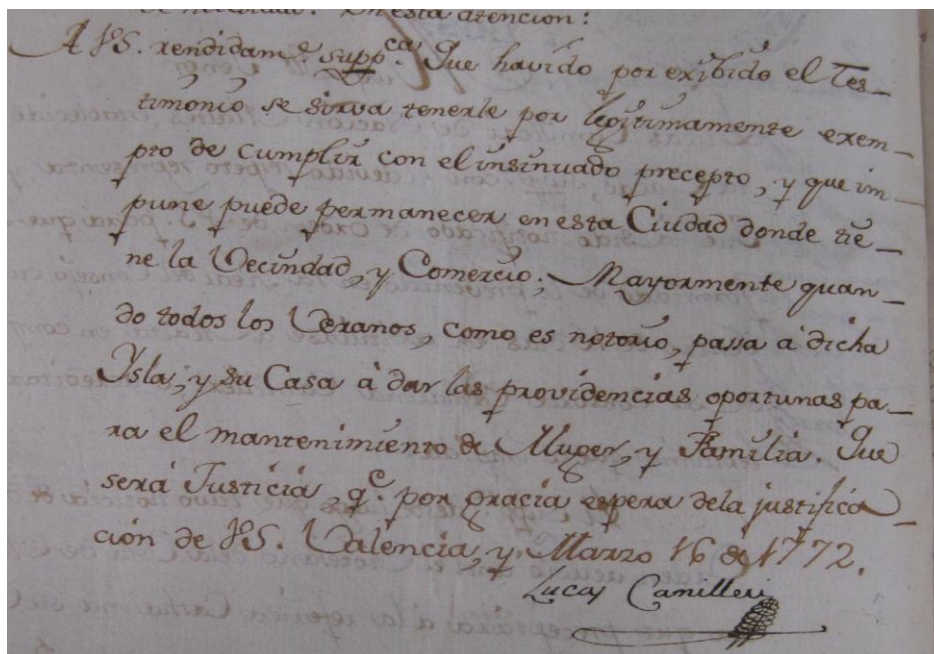 En esta atencion:
A VS. rendidam.te supp.ca Que havido por exibido el Tes-
timonio se sirva tenerle por legitimamente exem-
pto de cumplir con el insinuado precepto, y que im-
pune puede permanecer en esta Ciudad donde tie-
ne la Vecindad, y Comercio; Mayormente quan-
do todos los Veranos, como es notorio, passa à dicha
Ysla, y su Casa à dar las providencias oportunas pa-
ra el mantenimiento de Muger, y Familia. Que
serà Justicia, q.e por gracia espera dela justifica-
ción de VS. Valencia, y Marzo 16 de 1772.
Lucas Camilleri